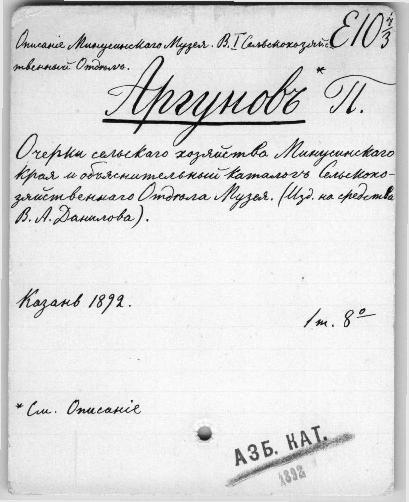 Описаніе Минусинскаго Музея. В. I Сельскохозяйс- E10 4/3
твенный Отдѣлъ.
Аргуновъ * П.
Очерки сельскаго хозяйства Минусинскаго
края и объяснительный каталогъ Сельскохо-
зяйственнаго Отдѣла Музея. (Изд. на средства
В. А. Данилова).
Казань 1892.
1 т. 8º
* См. Описаніе
АЗБ. КАТ.
1892